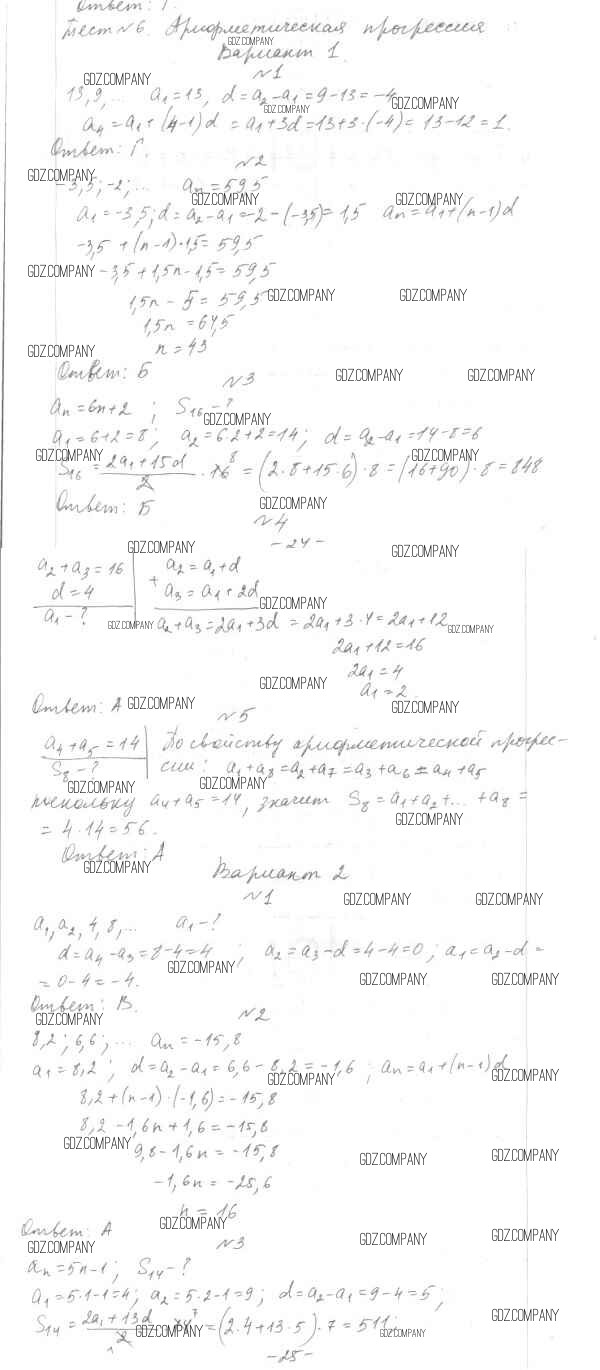 Ответ: Г.
Тест №6. Арифметическая прогрессия
Вариант 1.
№1
13, 9, ... a₁ = 13, d = a₂ - a₁ = 9 - 13 = -4
a₄ = a₁ + (4-1)d = a₁ + 3d = 13 + 3·(-4) = 13 - 12 = 1.
Ответ: Г.
№2
-3,5; -2; ... aₙ = 59,5
a₁ = -3,5; d = a₂ - a₁ = -2 - (-3,5) = 1,5 aₙ = a₁ + (n-1)d
-3,5 + (n-1)·1,5 = 59,5
-3,5 + 1,5n - 1,5 = 59,5
1,5n - 5 = 59,5
1,5n = 64,5
n = 43
Ответ: Б
№3
aₙ = 6n+2 ; S₁₆ - ?
a₁ = 6+2 = 8; a₂ = 6·2+2 = 14; d = a₂ - a₁ = 14 - 8 = 6
S₁₆ = (2a₁ + 15d)/2 · 16 ⁸ = (2·8 + 15·6)·8 = (16+90)·8 = 848
Ответ: Б
№4
- 24 -
a₂ + a₃ = 16 a₂ = a₁ + d
d = 4 + a₃ = a₁ + 2d
a₁ - ? a₂ + a₃ = 2a₁ + 3d = 2a₁ + 3·4 = 2a₁ + 12
2a₁ + 12 = 16
2a₁ = 4
a₁ = 2
Ответ: А
№5
a₄ + a₅ = 14 По свойству арифметической прогрес-
S₈ - ? сии: a₁ + a₈ = a₂ + a₇ = a₃ + a₆ = a₄ + a₅
поскольку a₄ + a₅ = 14, значит S₈ = a₁ + a₂ + ... + a₈ =
= 4·14 = 56.
Ответ: А
Вариант 2
№1
a₁, a₂, 4, 8, ... a₁ - ?
d = a₄ - a₃ = 8 - 4 = 4 ; a₂ = a₃ - d = 4 - 4 = 0 ; a₁ = a₂ - d =
= 0 - 4 = -4.
Ответ: В.
№2
8,2 ; 6,6 ; ... aₙ = -15,8
a₁ = 8,2 ; d = a₂ - a₁ = 6,6 - 8,2 = -1,6 ; aₙ = a₁ + (n-1)d
8,2 + (n-1)·(-1,6) = -15,8
8,2 - 1,6n + 1,6 = -15,8
9,8 - 1,6n = -15,8
-1,6n = -25,6
n = 16
Ответ: А
№3
aₙ = 5n-1; S₁₄ - ?
a₁ = 5·1-1 = 4; a₂ = 5·2-1 = 9; d = a₂ - a₁ = 9 - 4 = 5;
S₁₄ = (2a₁ + 13d)/2 · 14 ⁷ = (2·4 + 13·5)·7 = 511;
- 25 -
GDZ.COMPANY